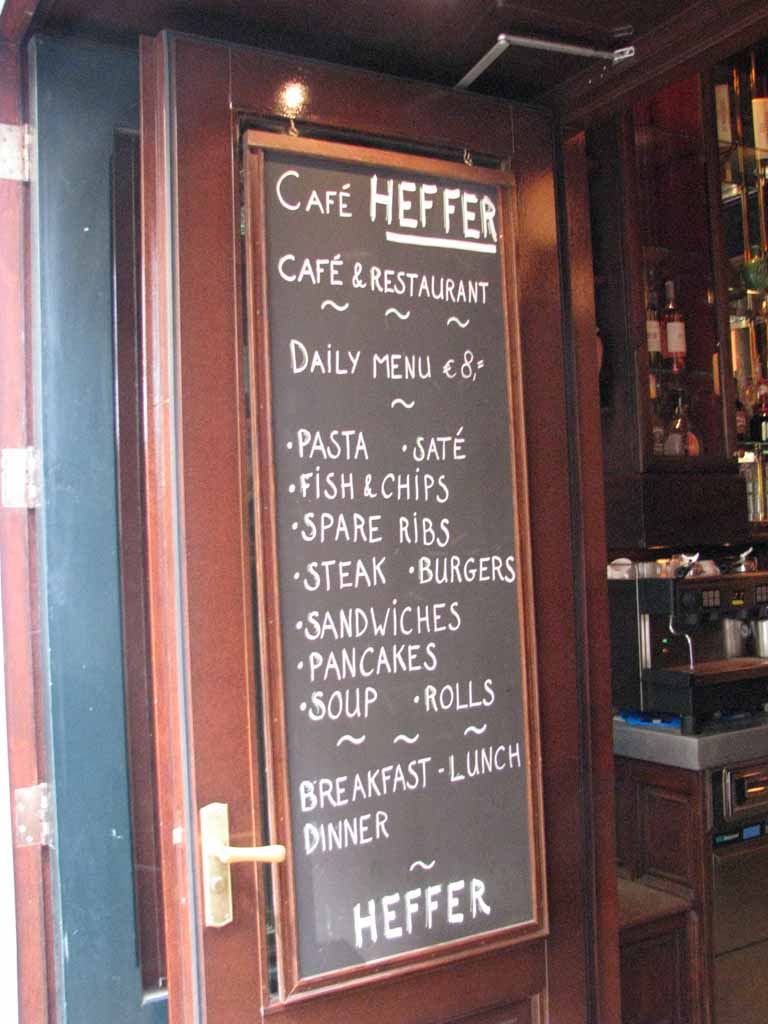 CAFÉ HEFFER
CAFÉ & RESTAURANT
~ ~ ~
DAILY MENU €8,=
~
·PASTA ·SATÉ
·FISH & CHIPS
·SPARE RIBS
·STEAK ·BURGERS
·SANDWICHES
·PANCAKES
·SOUP ·ROLLS
~ ~ ~
BREAKFAST - LUNCH
DINNER
~
HEFFER